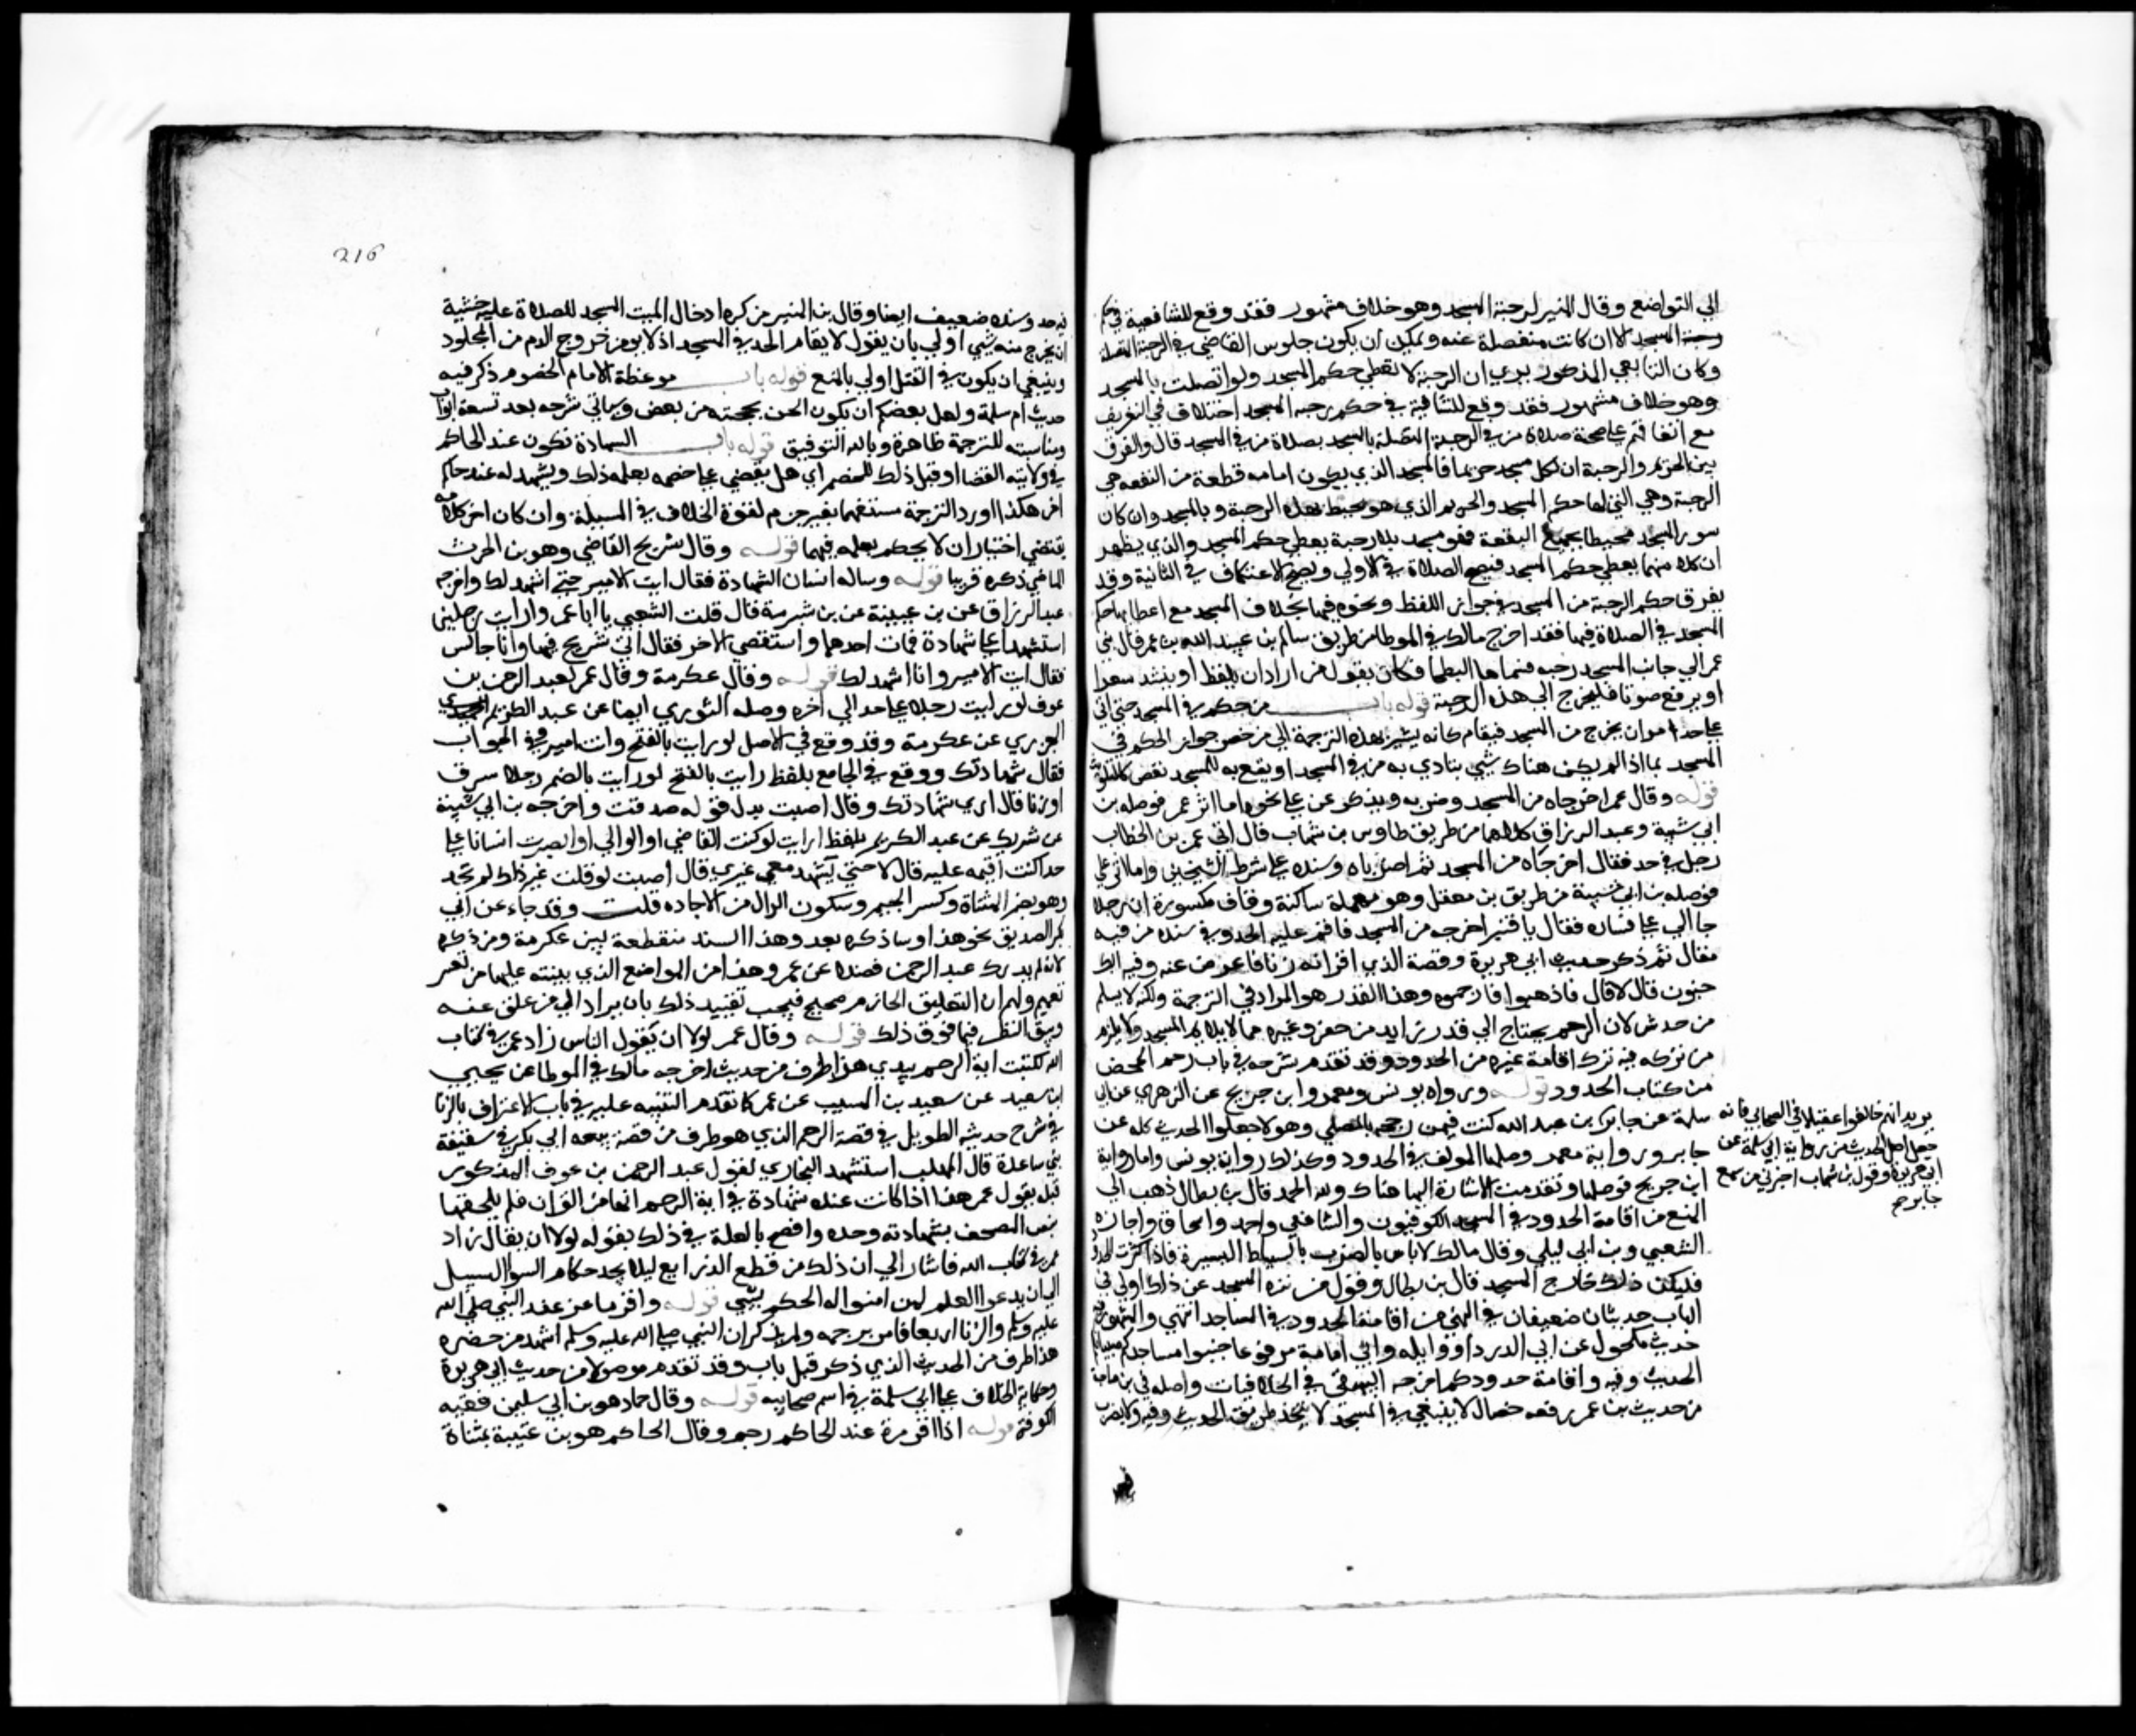 الي التواضع وقال المنير لرحبة المسجد وهو خلاف مشهور فقد وقع للشافعية في حكم
رحبة المسجد الا ان كانت منفصلة عنه ويمكن ان يكون جلوس القاضي في الرحبة المتصلة
وكان التابعي المذكور يري ان الرحبة لا تعطي حكم المسجد ولو اتصلت بالمسجد
وهو خلاف مشهور فقد وقع للشافعية في حكم رحبة المسجد اختلاف في التعريف
مع اتفاقهم علي صحة صلاة من في الرحبة المتصلة بالمسجد بصلاة من في المسجد قال والفرق
بين الحريم والرحبة ان لكل مسجد حريما فالمسجد الذي يكون امامه قطعة من البقعة هي
الرحبة وهي التي لها حكم المسجد والحريم الذي هو محيط بهذه الرحبة وبالمسجد وان كان
سور المسجد محيطا بجميع البقعة فهو مسجد بلا رحبة يعطي حكم المسجد والذي يظهر
ان كلا منهما يعطي حكم المسجد فيصح الصلاة في الاولي ويصح الاعتكاف في الثانية وقد
يفرق حكم الرحبة من المسجد في جواز اللفظ ونحوه فيها بخلاف المسجد مع اعطايها حكم
المسجد في الصلاة فيها فقد اخرج مالك في الموطا من طريق سالم بن عبد الله بن عمر قال بني
عمر الي جانب المسجد رحبة فسماها البطحا فكان يقول من اراد ان يلفظ او ينشد شعرا
او يرفع صوتا فليخرج الي هذه الرحبة قوله باب من حكم في المسجد حتي اتي
علي حد امر ان يخرج من المسجد فيقام كانه يشير بهذه الترجمة الي من خص جواز الحكم في
المسجد بما اذا لم يكن هناك شيي يتاذي به من في المسجد او يقع به للمسجد نقص كالتلويث
قوله وقال عمر اخرجاه من المسجد وضربه ويذكر عن علي نحوه اما اثر عمر فوصله بن
ابي شيبة وعبد الرزاق كلاهما من طريق طاوس بن شهاب قال اتي عمر بن الخطاب
رجل في حد فقال اخرجاه من المسجد ثم اضرباه وسنده علي شرط الشيخين واما اثر علي
فوصله بن ابي شيبة من طريق بن معقل وهو بمهملة ساكنة وقاف مكسورة ان رجلا
جا الي علي فساره فقال يا قنبر اخرجه من المسجد فاقم عليه الحد وفي سنده من فيه
مقال ثم ذكر حديث ابي هريرة وقصة الذي اقر انه زنا فاعرض عنه وفيه ابك
جنون قال لا قال فاذهبوا فارجموه وهذا القدر هو المراد في الترجمة ولكنه لا يسلم
من خدش لان الرجم يحتاج الي قدر زايد من حفر وغيره مما لا يلايم المسجد ولا يلزم
من تركه فيه ترك اقامة غيره من الحدود وقد تقدم شرحه في باب رجم المحصن
من كتاب الحدود قوله ورواه يونس ومعمر وابن جريج عن الزهري عن ابي
سلمة عن جابر بن عبد الله كنت فيمن رجمه بالمصلي وهولا جعلوا الحديث كله عن
جابر ورواية معمر وصلها المولف في الحدود وكذلك رواية يونس واما رواية
ابن جريج فوصلها وتقدمت الاشارة اليها هناك ولله الحمد قال بن بطال ذهب الي
المنع من اقامة الحدود في المسجد الكوفيون والشافعي واحمد واسحاق واجازه
الشعبي وبن ابي ليلي وقال مالك لا باس بالضرب بالسياط اليسيرة فاذا كثرت الحدود
فليكن ذلك خارج المسجد قال بن بطال وقول من نزه المسجد عن ذلك اولي في
الباب حديثان ضعيفان في النهي عن اقامة الحدود في المساجد انتهي والمشهور فيه
حديث مكحول عن ابي الدردا وواثلة وابي امامة مرفوعا جنبوا مساجدكم صبيانكم
الحديث وفيه واقامة حدودكم اخرجه البيهقي في الخلافيات واصله في بن ماجة
من حديث بن عمر رفعه خصال لا ينبغي في المسجد لا يتخذ طريقا الحديث وفيه ولا يضرب
يريد انهم خالفوا عقيلا في الصحابي فانه
جعل اصل الحديث من رواية ابي سلمة عن
ابي هريرة وقول بن شهاب اخبرني من سمع
جابر صح
216
فيه حد وسنده ضعيف ايضا وقال بن المنير من كره ادخال الميت المسجد للصلاة عليه خشية
ان يخرج منه شيي اولي بان يقول لا يقام الحد في المسجد اذ لا يومن خروج الدم من المجلود
وينبغي ان يكون في القتل اولي بالمنع قوله باب موعظة الامام الخصوم ذكر فيه
حديث ام سلمة ولعل بعضكم ان يكون الحن بحجته من بعض وسياتي شرحه بعد تسعة ابواب
ومناسبته للترجمة ظاهرة وبالله التوفيق قوله باب الشهادة تكون عند الحاكم
في ولايته القضا او قبل ذلك للخصم اي هل يقضي علي خصمه بعلمه ذلك ويشهد له عند حاكم
اخر هكذا اورد الترجمة مستفهما بغير جزم لقوة الخلاف في المسيلة وان كان اخر كلامه
يقتضي اختيار ان لا يحكم بعلمه فيها قوله وقال شريح القاضي وهو بن الحرث
الماضي ذكره قريبا قوله وساله انسان الشهادة فقال ايت الامير حتي اشهد لك واخرجه
عبد الرزاق عن بن عيينة عن بن شبرمة قال قلت للشعبي يا ابا عمرو ارايت رجلين
استشهدا علي شهادة فمات احدهما واستقضي الاخر فقال اتي شريح فيها وانا جالس
فقال ايت الامير وانا اشهد لك قوله وقال عكرمة وقال عمر لعبد الرحمن بن
عوف لو رايت رجلا علي حد الي اخره وصله الثوري ايضا عن عبد الكريم
الجزري عن عكرمة وقد وقع في الاصل لو رايت بالفتح وانت امير وفي الجواب
فقال شهادتك ووقع في الجامع بلفظ رايت بالفتح لو رايت بالضم رجلا سرق
او زنا قال اري شهادتك وقال اصبت بدل قوله صدقت واخرجه بن ابي شيبة
عن شريك عن عبد الكريم بلفظ ارايت لو كنت القاضي او الوالي او ابصرت انسانا علي
حد اكنت اقيمه عليه قال لا حتي يشهد معي غيري قال اصبت لو قلت غير ذلك لم تجد
وهو بضم المثناة وكسر الجيم وسكون الدال من الاجاده قلت وقد جاء عن ابي
بكر الصديق نحو هذا وساذكره بعد وهذا السند منقطعة بين عكرمة ومن ذكره
لانه لم يدرك عبد الرحمن فضلا عن عمر وهذا من المواضع الذي ينبته عليها من تعبر
تعميم ولهم ان التعليق الجازم صحيح فيجب تقييد ذلك بان يراد الي من علق عنه
ويبقي النظر فيما فوق ذلك قوله وقال عمر لولا ان يقول الناس زاد عمر في كتاب
الله لكتبت اية الرجم بيدي هذا طرف من حديث اخرجه مالك في الموطا عن يحيي
ابن سعيد عن سعيد بن المسيب عن عمر كما تقدم التنبيه عليه في باب الاعتراف بالزنا
في شرح حديثه الطويل في قصة الرجم الذي هو طرف من قصة بيعة ابي بكر في سقيفة
بني ساعدة قال المهلب استشهد البخاري لقول عبد الرحمن بن عوف المذكور
قبله بقول عمر هذا اذا كانت عنده شهادة في اية الرجم انها من القران فلم يلحقها
بنص المصحف بشهادته وحده وافصح بالعلة في ذلك بقوله لولا ان يقال زاد
عمر في كتاب الله فاشار الي ان ذلك من قطع الذرايع ليلا يجد حكام السوا السبيل
الي ان يدعوا العلم لمن احبوا له الحكم بشيي قوله واقر ماعز عند النبي صلي الله
عليه وسلم والزنا اربعا فامر برجمه ولم يذكر ان النبي صلي الله عليه وسلم اشهد من حضره
هذا طرف من الحديث الذي ذكر قبل باب وقد تقدم موصولا من حديث ابي هريرة
وحكاية الخلاف علي ابي سلمة في اسم صحابيه قوله وقال حماد هو بن ابي سليمن فقيه
الكوفة قوله اذا اقر مرة عند الحاكم رجم وقال الحاكم هو بن عتيبة بمثناة